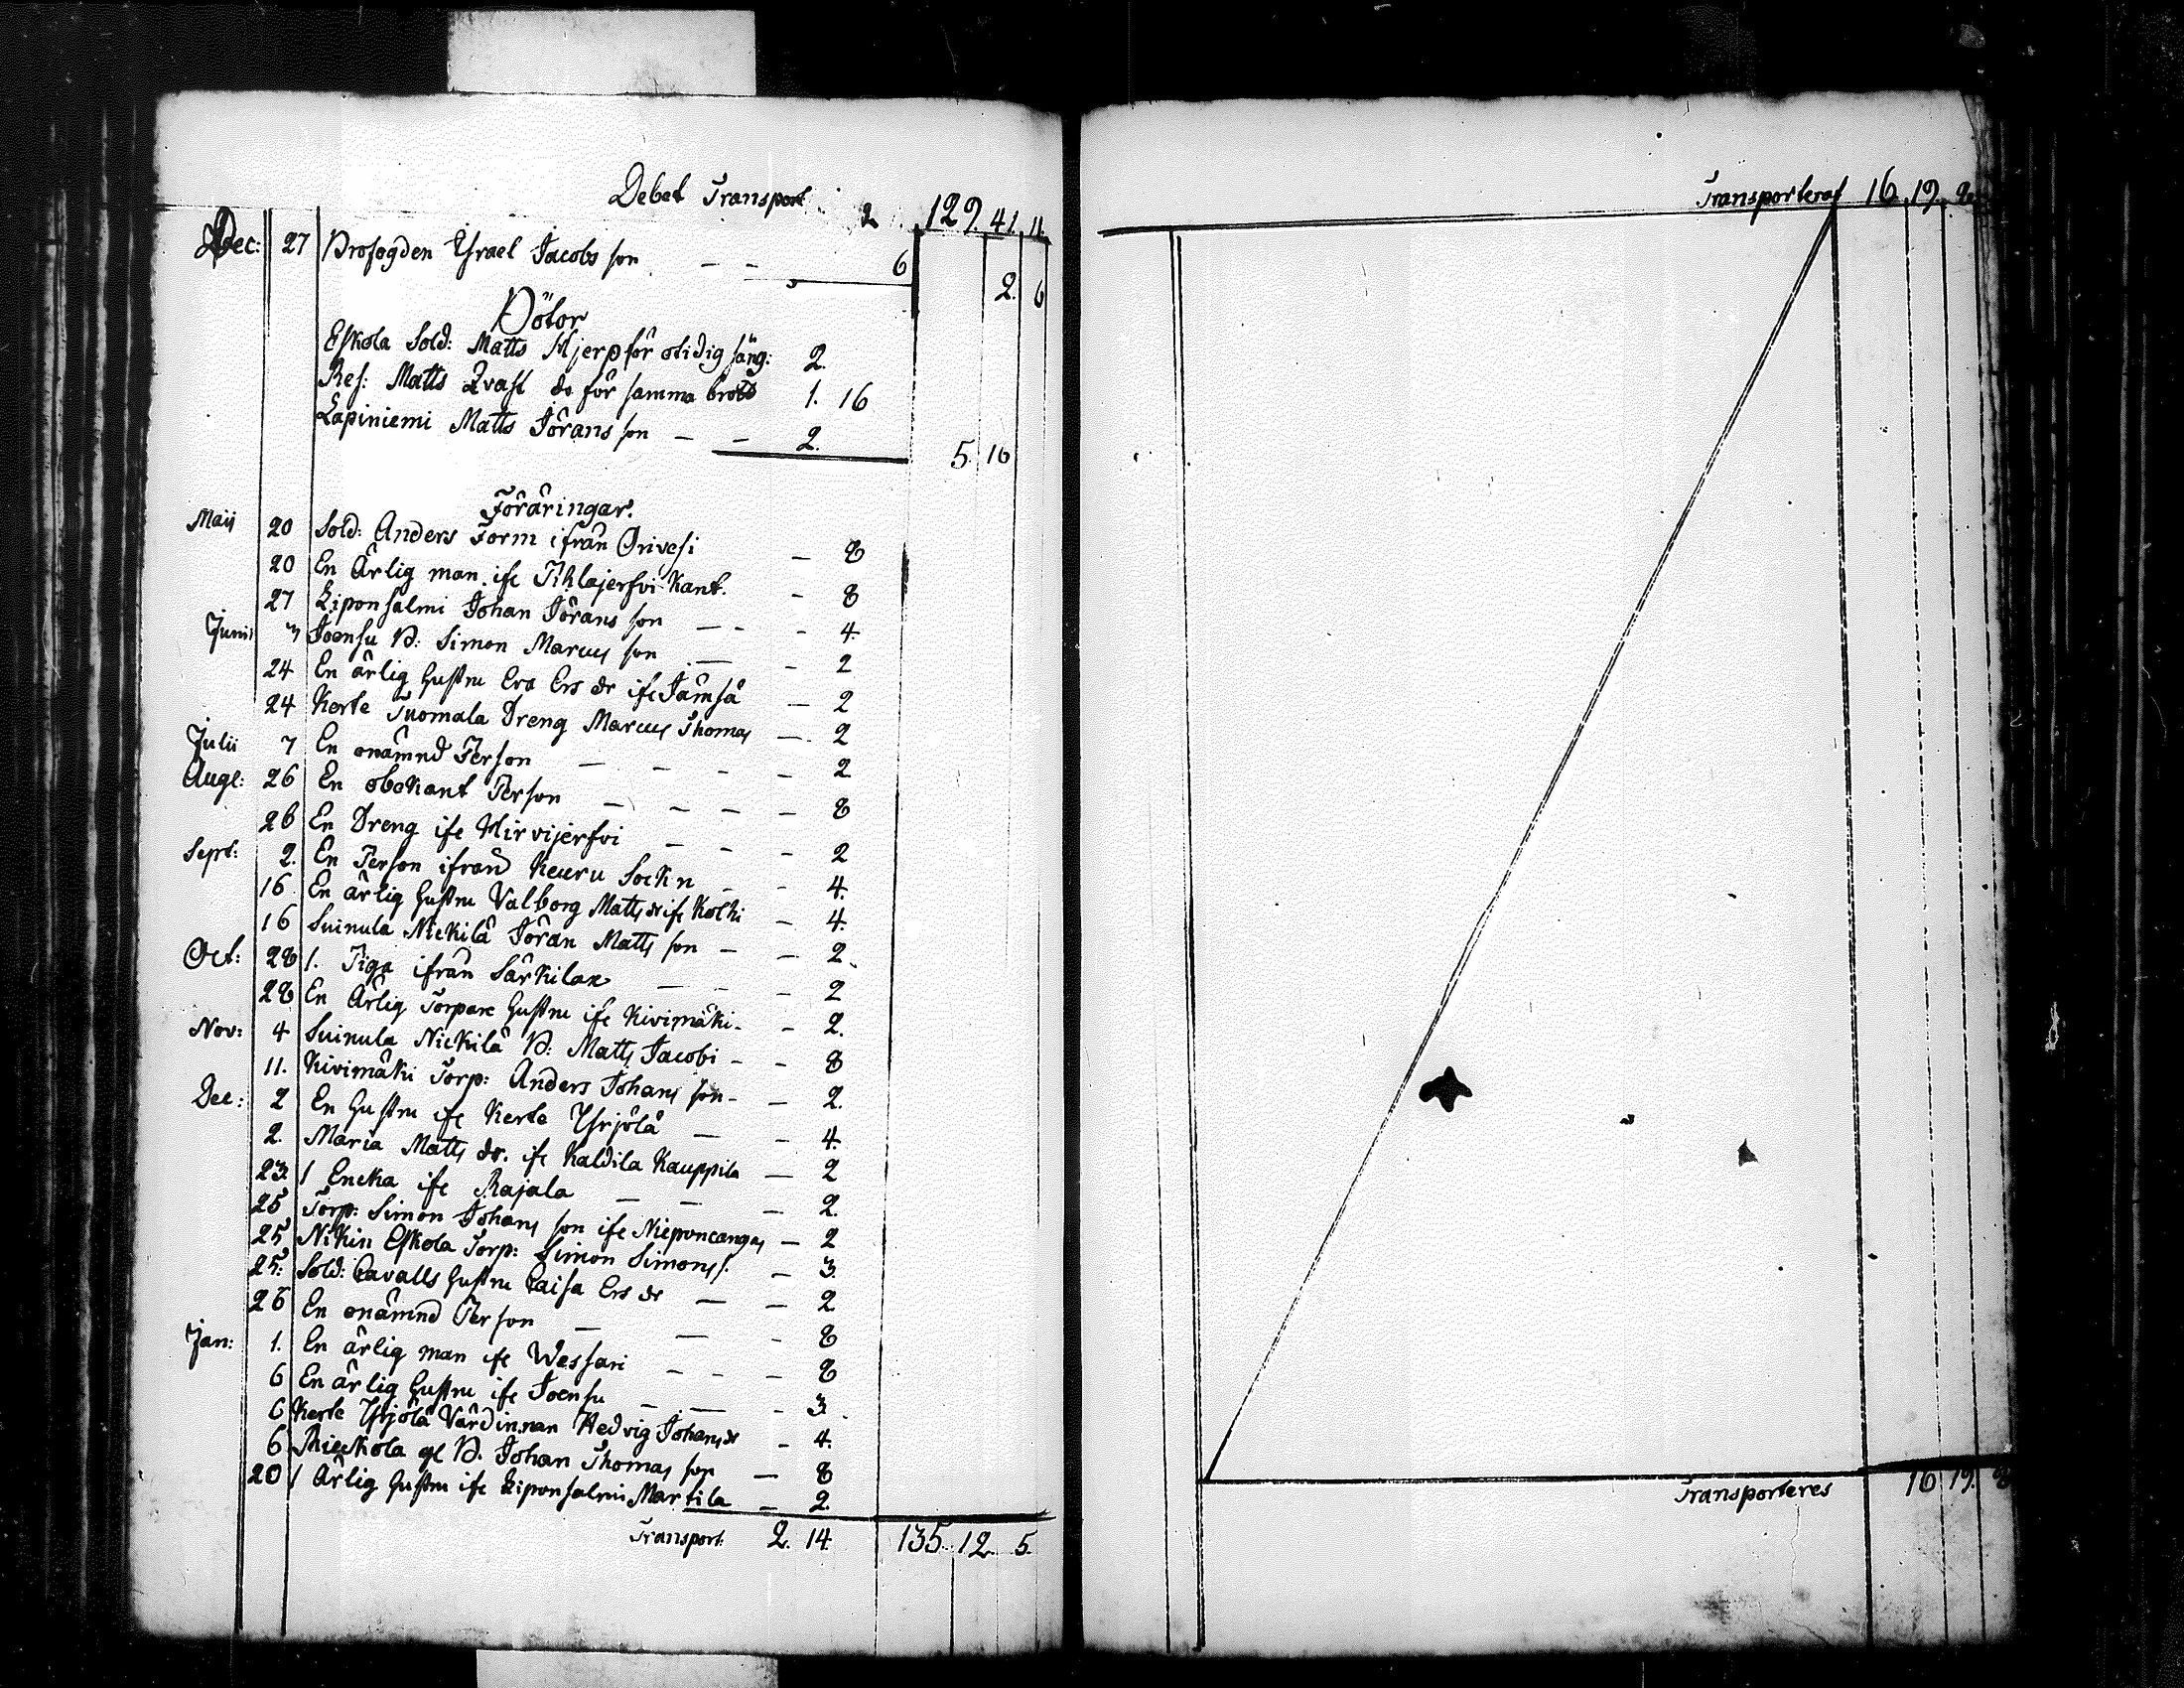 Debet Transport 2 129. 41. 11.
Dec: 27 Profogden Ysrael Jacobs son — — 6
2. 6
Böter
Eskola Sold: Matts Hjerp för otidig säng: 2.
Res: Matts Qvast do för samma brott 1. 16
Lapiniemi Matts Jörans son — — 2. 5. 16
Föräringar.
Maij 20 Sold: Anders Form ifrån Orivesi — 8
20 En Ärlig man ifr Pihlajerfvi Kant. — 8
27 Liponsalmi Johan Jörans son — - - 4.
Junii 3 Joensu B: Simon Marcus son — - 2
24 En ärlig hustru Eva Ers dr ifr Jämsä — 2
24 Kerte Tuomala Dreng Marcus Thomas — 2
Julii 7 En onämnd Person — — - - 2
Augt: 26 En obekant Person — — — — 8
26 En Dreng ifr Hirvijerfvi — - - 2
Sept: 2. En Person ifrån Keuru Sockn - - 4.
16. En ärlig hustru Valborg Matts dr ifr Kolhi — 4.
16 Suinula Nickilä Jöran Matts son — — 2.
Oct: 28 1. Piga ifrån Särkilax — - - 2
28 En Ärlig Torpare hustru ifr Kivimäki - - 2.
Nov: 4 Suinula Nickilä B: Matts Jacobi — - 8
11. Kivimäki Torp: Anders Johans son - — 2.
Dec: 2 En hustru ifr Kerte Yrjölä — - 4.
2. Maria Matts dr. ifr Kaldila Kauppila — 2
23. 1 Encka ifr Rajala — — — 2.
25 Torp: Simon Johans son ifr Nieponcangas — 2
25 Nikin Eskola Torp: Simon Simons s. — 3.
25: Sold: Cavalls hustru Caisa Ers dr — — 2.
26 En onämnd Person — — - 8
Jan: 1. En ärlig man ifr Wessari - - - 8
6 En ärlig hustru ifr Joensu — — - 3.
6 Kerte Yrjölä Värdinnan Hedvig Johans dr — 4.
6 Mieckola gl B. Johan Thomas son — 8
20 1 Ärlig hustru ifr Liponsalmi Martila — 2.
Transport 2. 14. 135. 12. 5.
Transporterat 16. 19.
Transporteres 16 19. 8